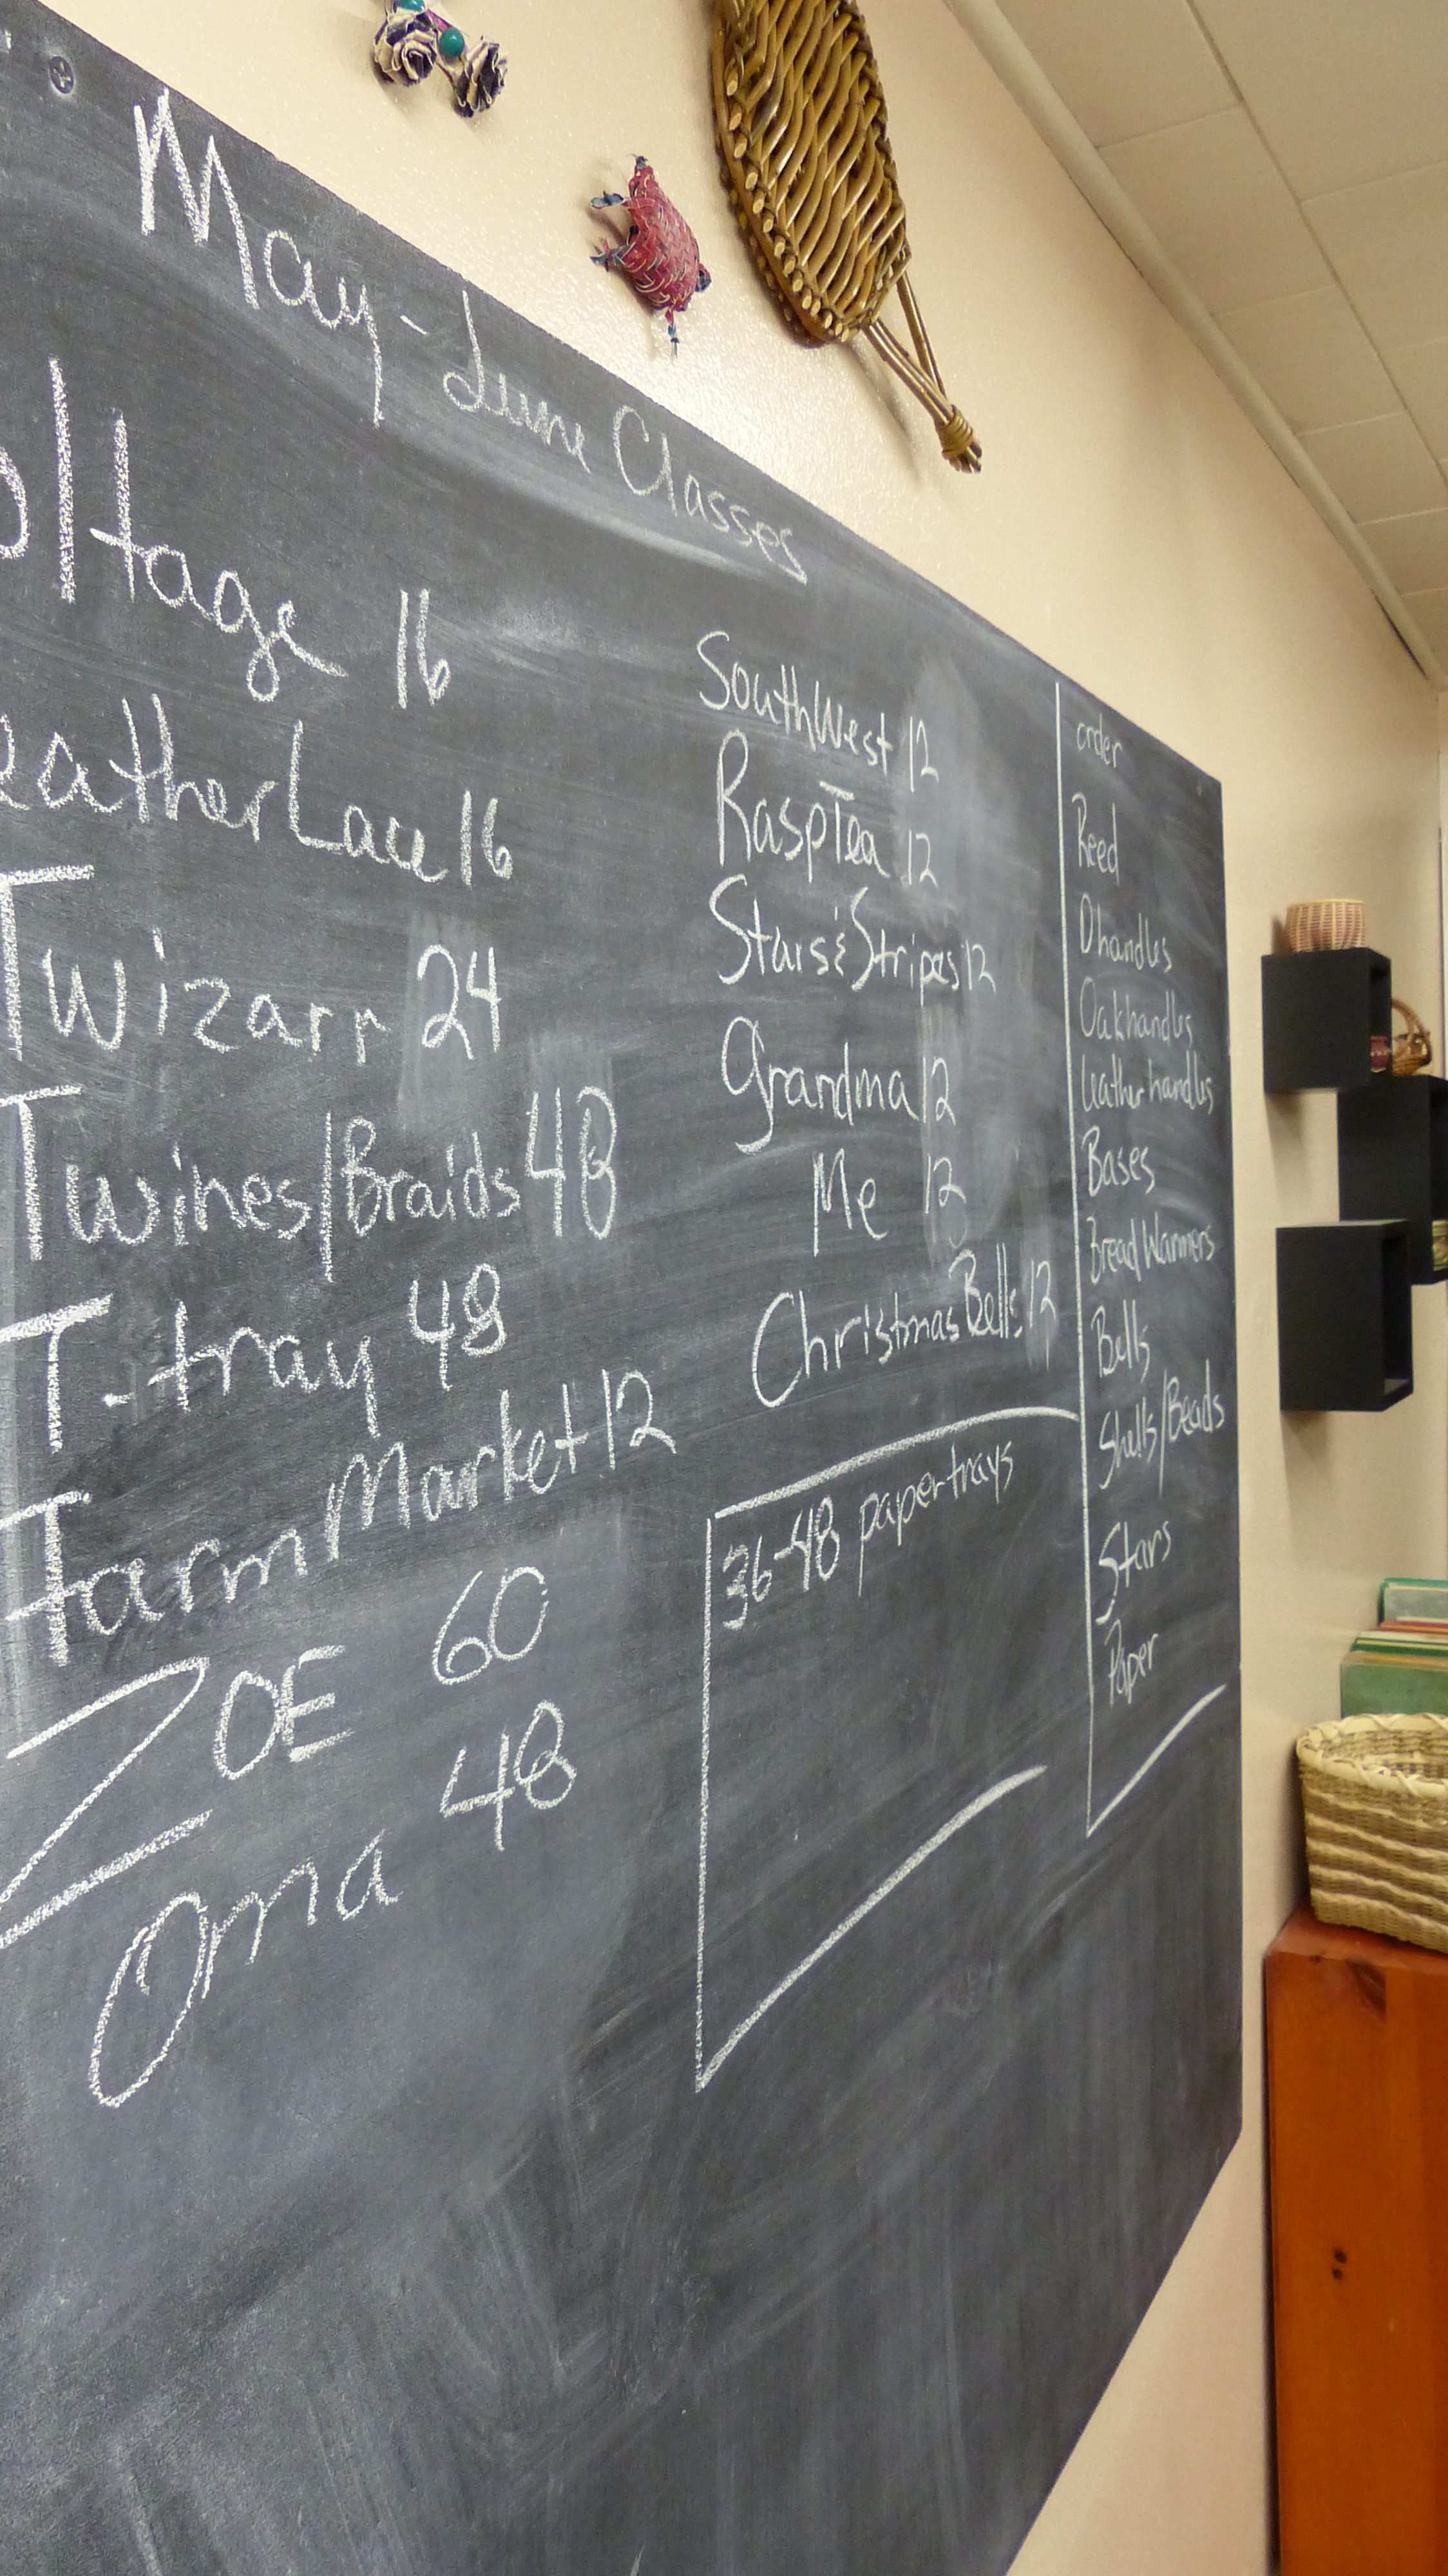 May-June Classes
oltage 16
eather Lace 16
Twizarr 24
Twines/Braids 48
T-tray 48
Farm Market 12
ZOE 60
Oma 48
SouthWest 12
Rasp Tea 12
Stars & Stripes 12
Grandma 12
Me 12
Christmas Bells 12
36-48 paper trays
order
Reed
D handles
Oak handles
leather handles
Bases
Bread Warmers
Bells
Shells/Beads
Stars
Paper